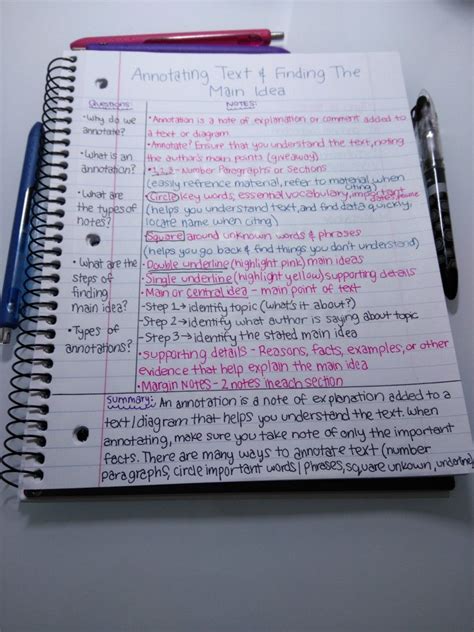 Annotating Text & Finding The
Main Idea
Questions:
• Why do we
annotate?
• What is an
annotation?
• What are
the types of
notes?
• What are the
steps of
finding
main idea?
• Types of
annotations?
NOTES:
• Annotation is a note of explanation or comment added to
a text or diagram.
• Annotate? Ensure that you understand the text, noting
the author's main points (giveaway)
• 1,2,3 - Number Paragraphs or Sections
(easily refrence material, refer to material when
citing)
• Circle key words, essential vocabulary, important
date, name
(helps you understand text, and find data quickly,
locate name when citing)
• Square around unknown words & phrases
(helps you go back & find things you don't understand)
• Double underline (highlight pink) main ideas
• Single underline (highlight yellow) supporting details
• Main or central idea - main point of text
- Step 1 → identify topic (what's it about?)
- Step 2 → identify what author is saying about topic
- Step 3 → identify the stated main idea
• supporting details - Reasons, facts, examples, or other
evidence that help explain the main idea
• Margin Notes - 2 notes in each section
Summary: An annotation is a note of explanation added to a
text/diagram that helps you understand the text. When
annotating, make sure you take note of only the important
facts. There are many ways to annotate text (number
paragraphs, circle important words/phrases, square unkown, underline)